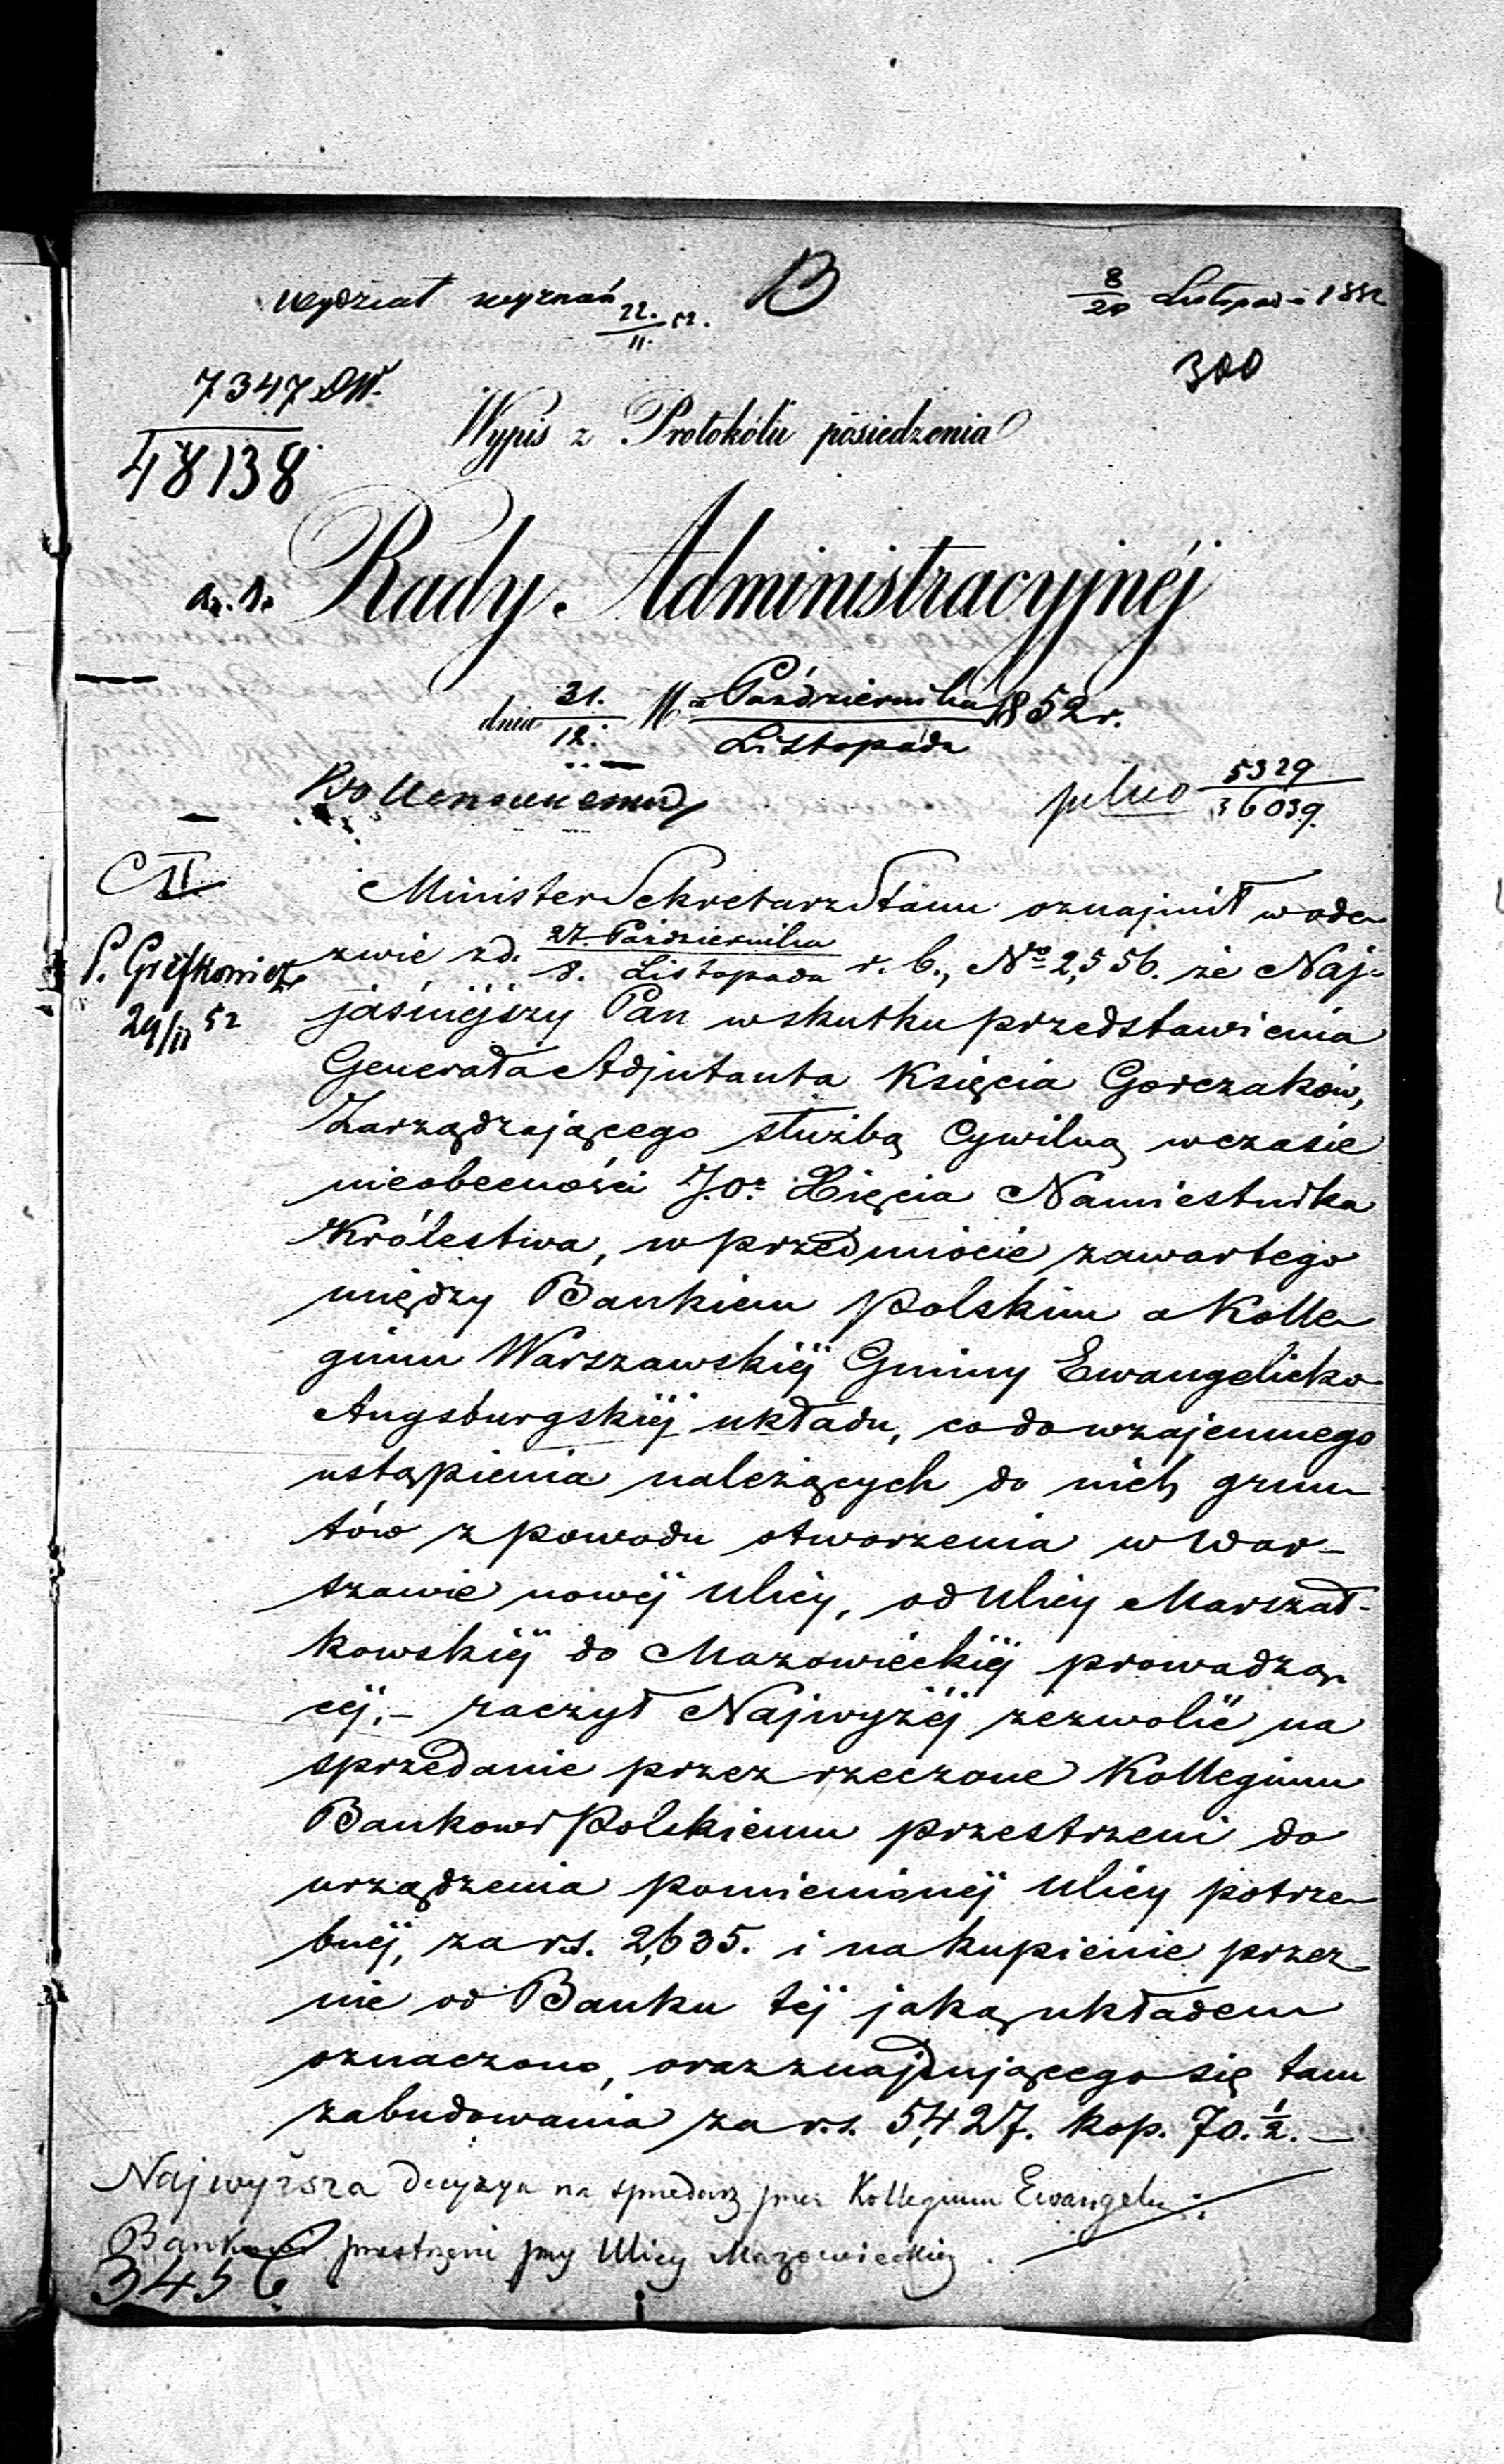 Wydział wyznań 22./11. 52.
B
8/20 Listopada 1852
300
7347 DW.
48138
Wypis z Protokółu posiedzenia
Rady Administracyjnéj
dnia 31./12. M-ca Października/Listopada 1852 r.
5329/36039.
C II
29/11 52
Minister Sekretarz Stanu oznajmił w ode
zwie z d. 27. Października/8. Listopada r. b., No 2,556. że Naj-
jaśniéjszy Pan wskutku przedstawienia
Generała Adjutanta Księcia Gorczaków,
Zarządzającego służbą Cywilną w czasie
nieobecności J.O. Xięcia Namiestnika
Królestwa, w przedmiocie zawartego
między Bankiem Polskim a Kolle
gium Warszawskiéj Gminy Ewangelicko
Augsburgskiéj układu, co do wzajemnego
ustąpienia należących do nich grun
tów z powodu otworzenia w War-
szawie nowéj Ulicy, od Ulicy Marszał-
kowskiéj do Mazowieckiéj prowadzą
céj, – raczył Najwyżéj zezwolić na
sprzedanie przez rzeczone Kollegium
Bankowi Polskiemu przestrzeni do
urządzenia pomienionéj Ulicy potrze
bnéj, za rs. 2,635. i na kupienie przez
nie od Banku téj jaką układem
oznaczono, oraz znajdującego się tam
zabudowania za rs. 5,427. kop. 70. 1/2. –
Najwyższa decyzya na sprzedarz przez Kollegium Ewangelic:
Bankowi przestrzeni przy Ulicy Mazowieckiej.
3456